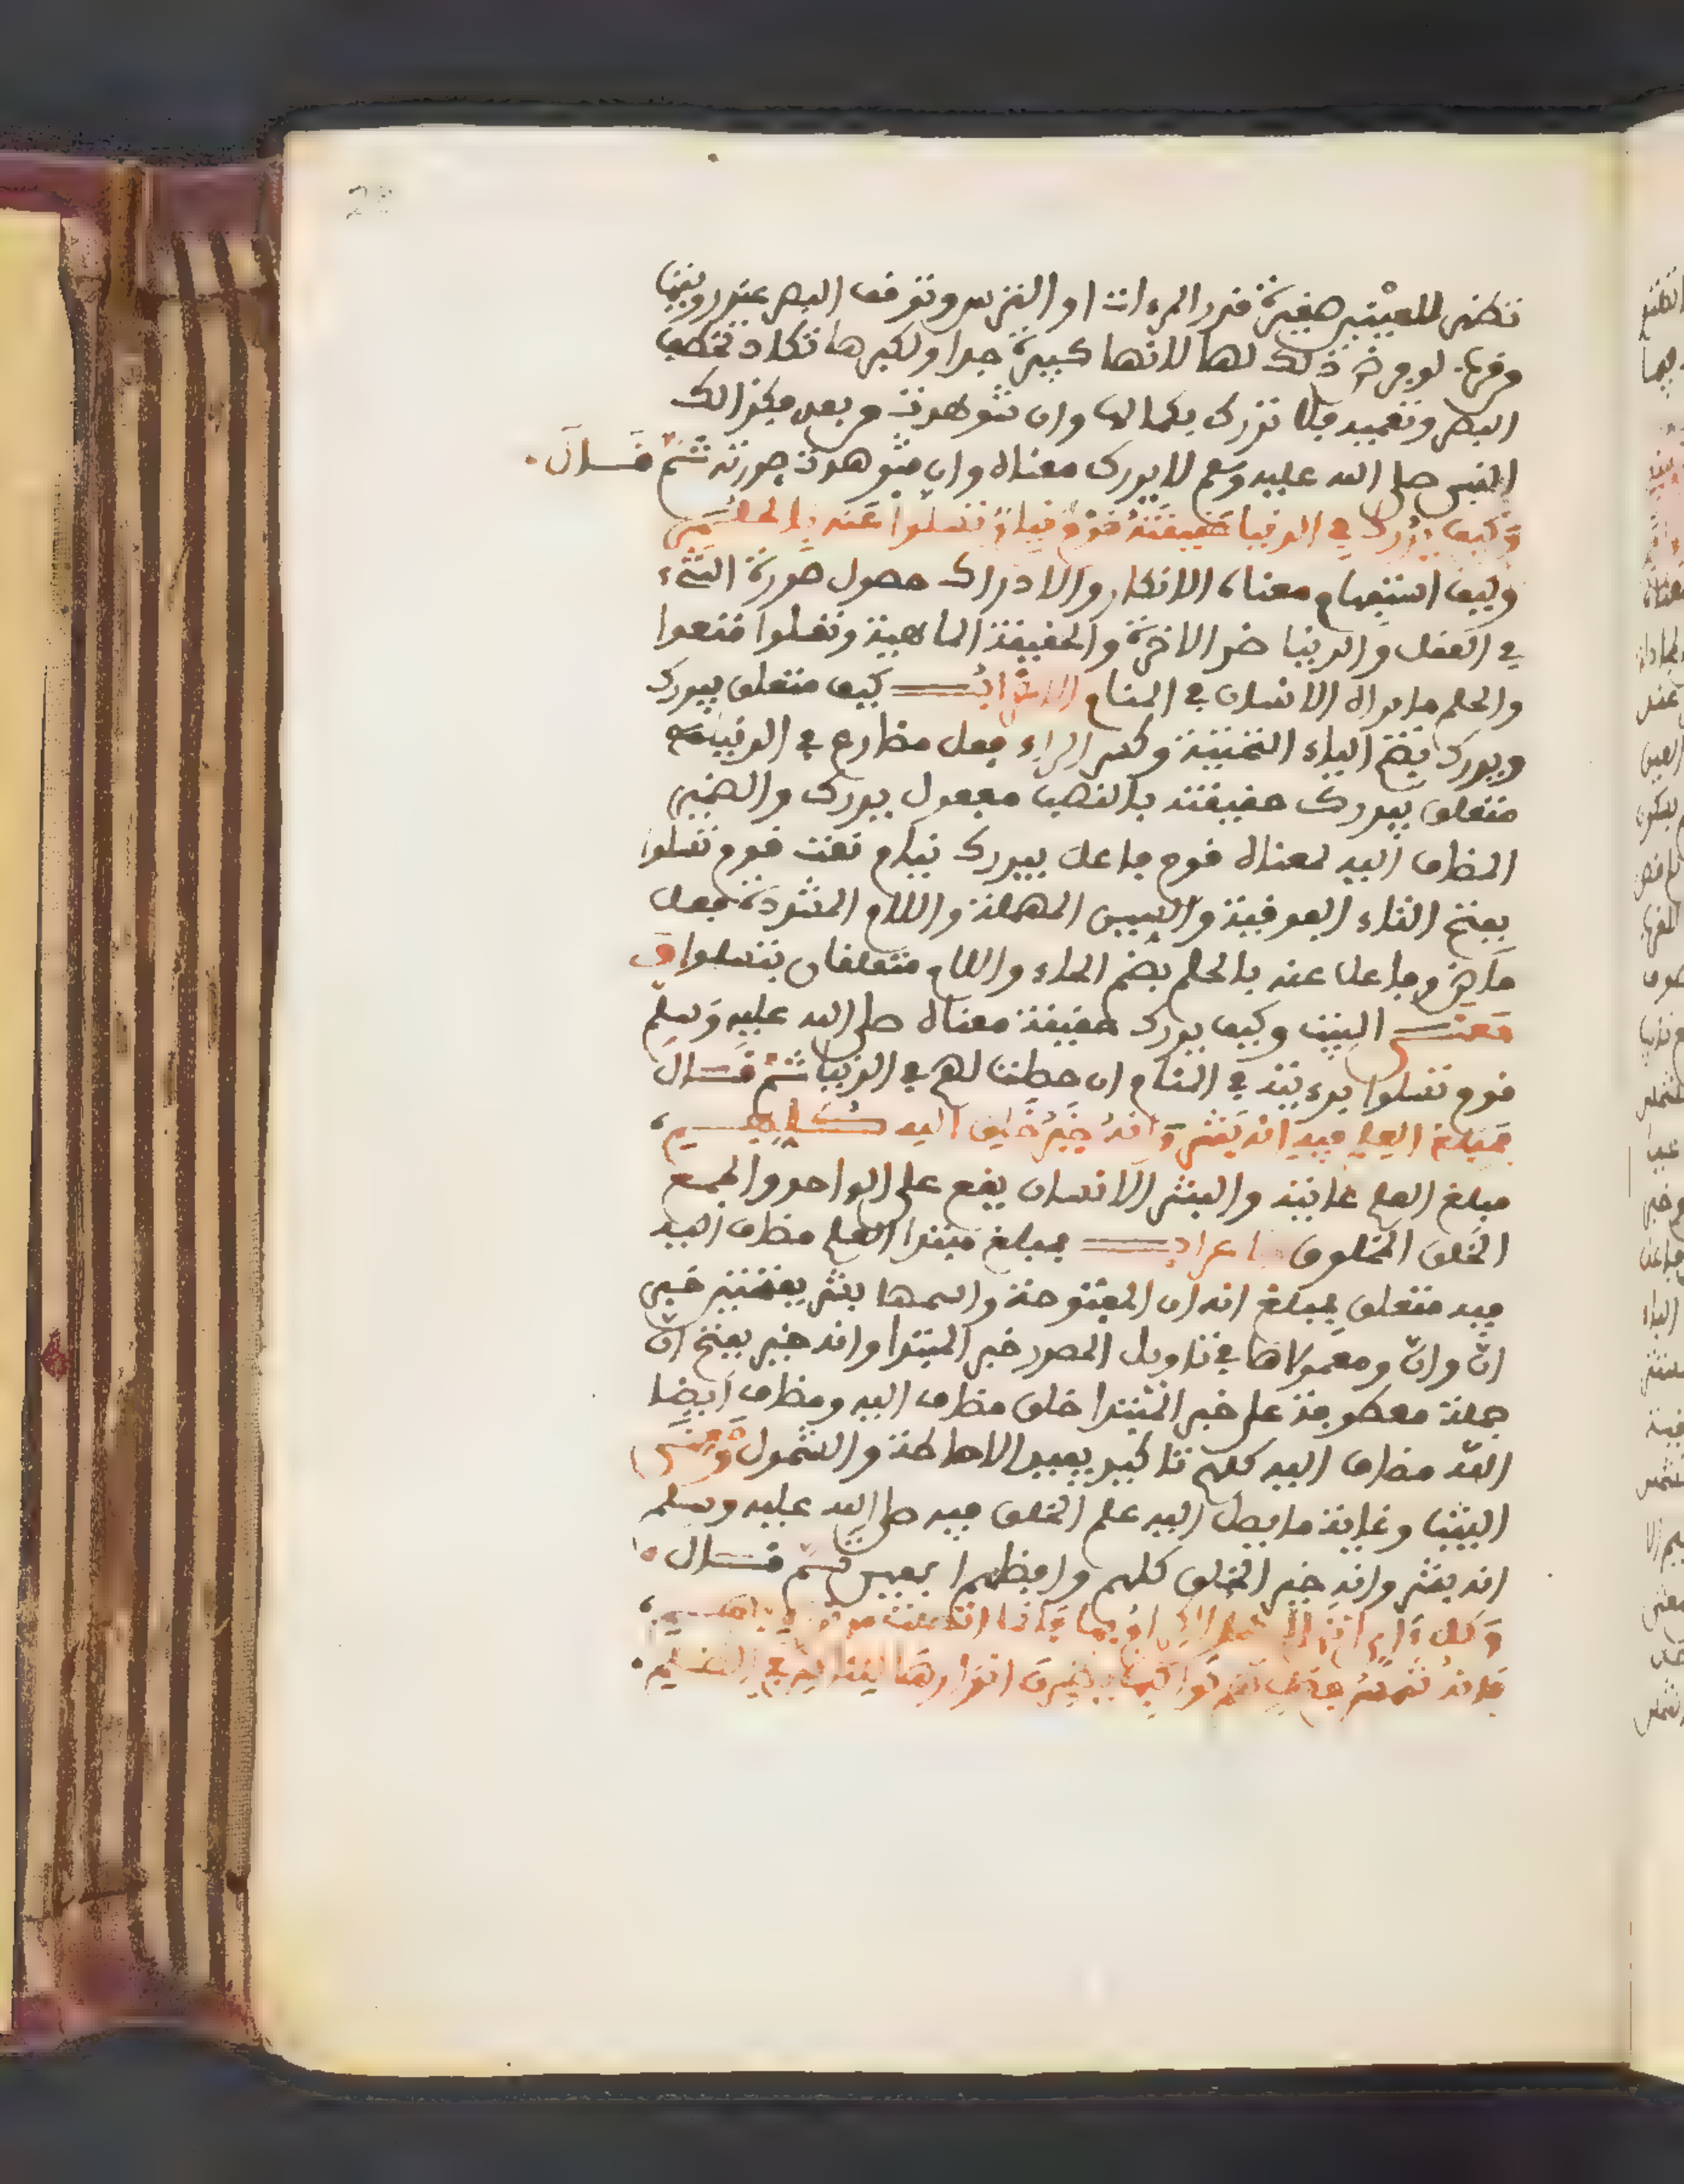 تظهر للعينين صغيرة قدر المرءات او الترس وتوقف البصر عند رويتها
وقربها لو فرض ذلك لها لانها كبيرة جدا ولكبرها تكاد تخطف
البصر وتعميه فلا تدرك بكمالها وان شوهدت من بعد فكذالك
النبي صلى الله عليه وسلم لا يدرك معناه وان شوهدت صورته ثم قال
وكيف يدرك في الدنيا حقيقته قوم نيام تسلوا عنه بالحلم
وكيف استفهام معناه الانكار والادراك حصول صورة الشيء
في العقل والدنيا ضد الاخرة والحقيقة الماهية وتسلوا قنعوا
والحلم ما يراه الانسان في المنام الاعراب كيف متعلق بيدرك
ويدرك بضم الياء التحتية وكسر الراء فعل مضارع في الدنيا
متعلق بيدرك حقيقته بالنصب مفعول يدرك والضمير
المضاف اليه لمعناه قوم فاعل بيدرك نيام نعت قوم تسلوا
بفتح التاء الفوقية والسين المهملة واللام المشددة فعل
ماض وفاعل عنه بالحلم بضم الحاء واللام متعلقان بتسلوا و
معنى البيت وكيف يدرك حقيقة معناه صلى الله عليه وسلم
قوم تسلوا برءيته في المنام ان حصلت لهم في الدنيا ثم قال
فمبلغ العلم فيه انه بشر وانه خير خلق الله كلهم
مبلغ العلم غايته والبشر الانسان يقع على الواحد والجمع
الخلق المخلوق الاعراب فمبلغ مبتدا العلم مضاف اليه
فيه متعلق بمبلغ انه ان المفتوحة واسمها بشر بفتحتين خبر
انّ وانّ ومعمولاها في تاويل المصدر خبر المبتدا وانه خير بفتح انّ
جملة معطوفة على خبر المبتدا خلق مضاف اليه ومضاف ايضا
الله مضاف اليه كلهم تاكيد يفيد الاحاطة والشمول ومعنى
البيت وغاية ما يصل اليه علم الخلق فيه صلى الله عليه وسلم
انه بشر وانه خير الخلق كلهم وافضلهم ثم قال
وكل ءاي اتى الرسل الكرام بها فانما اتصلت من نوره بهم
فانه شمس فضل هم كواكبها يظهرن انوارها للناس في الظلم